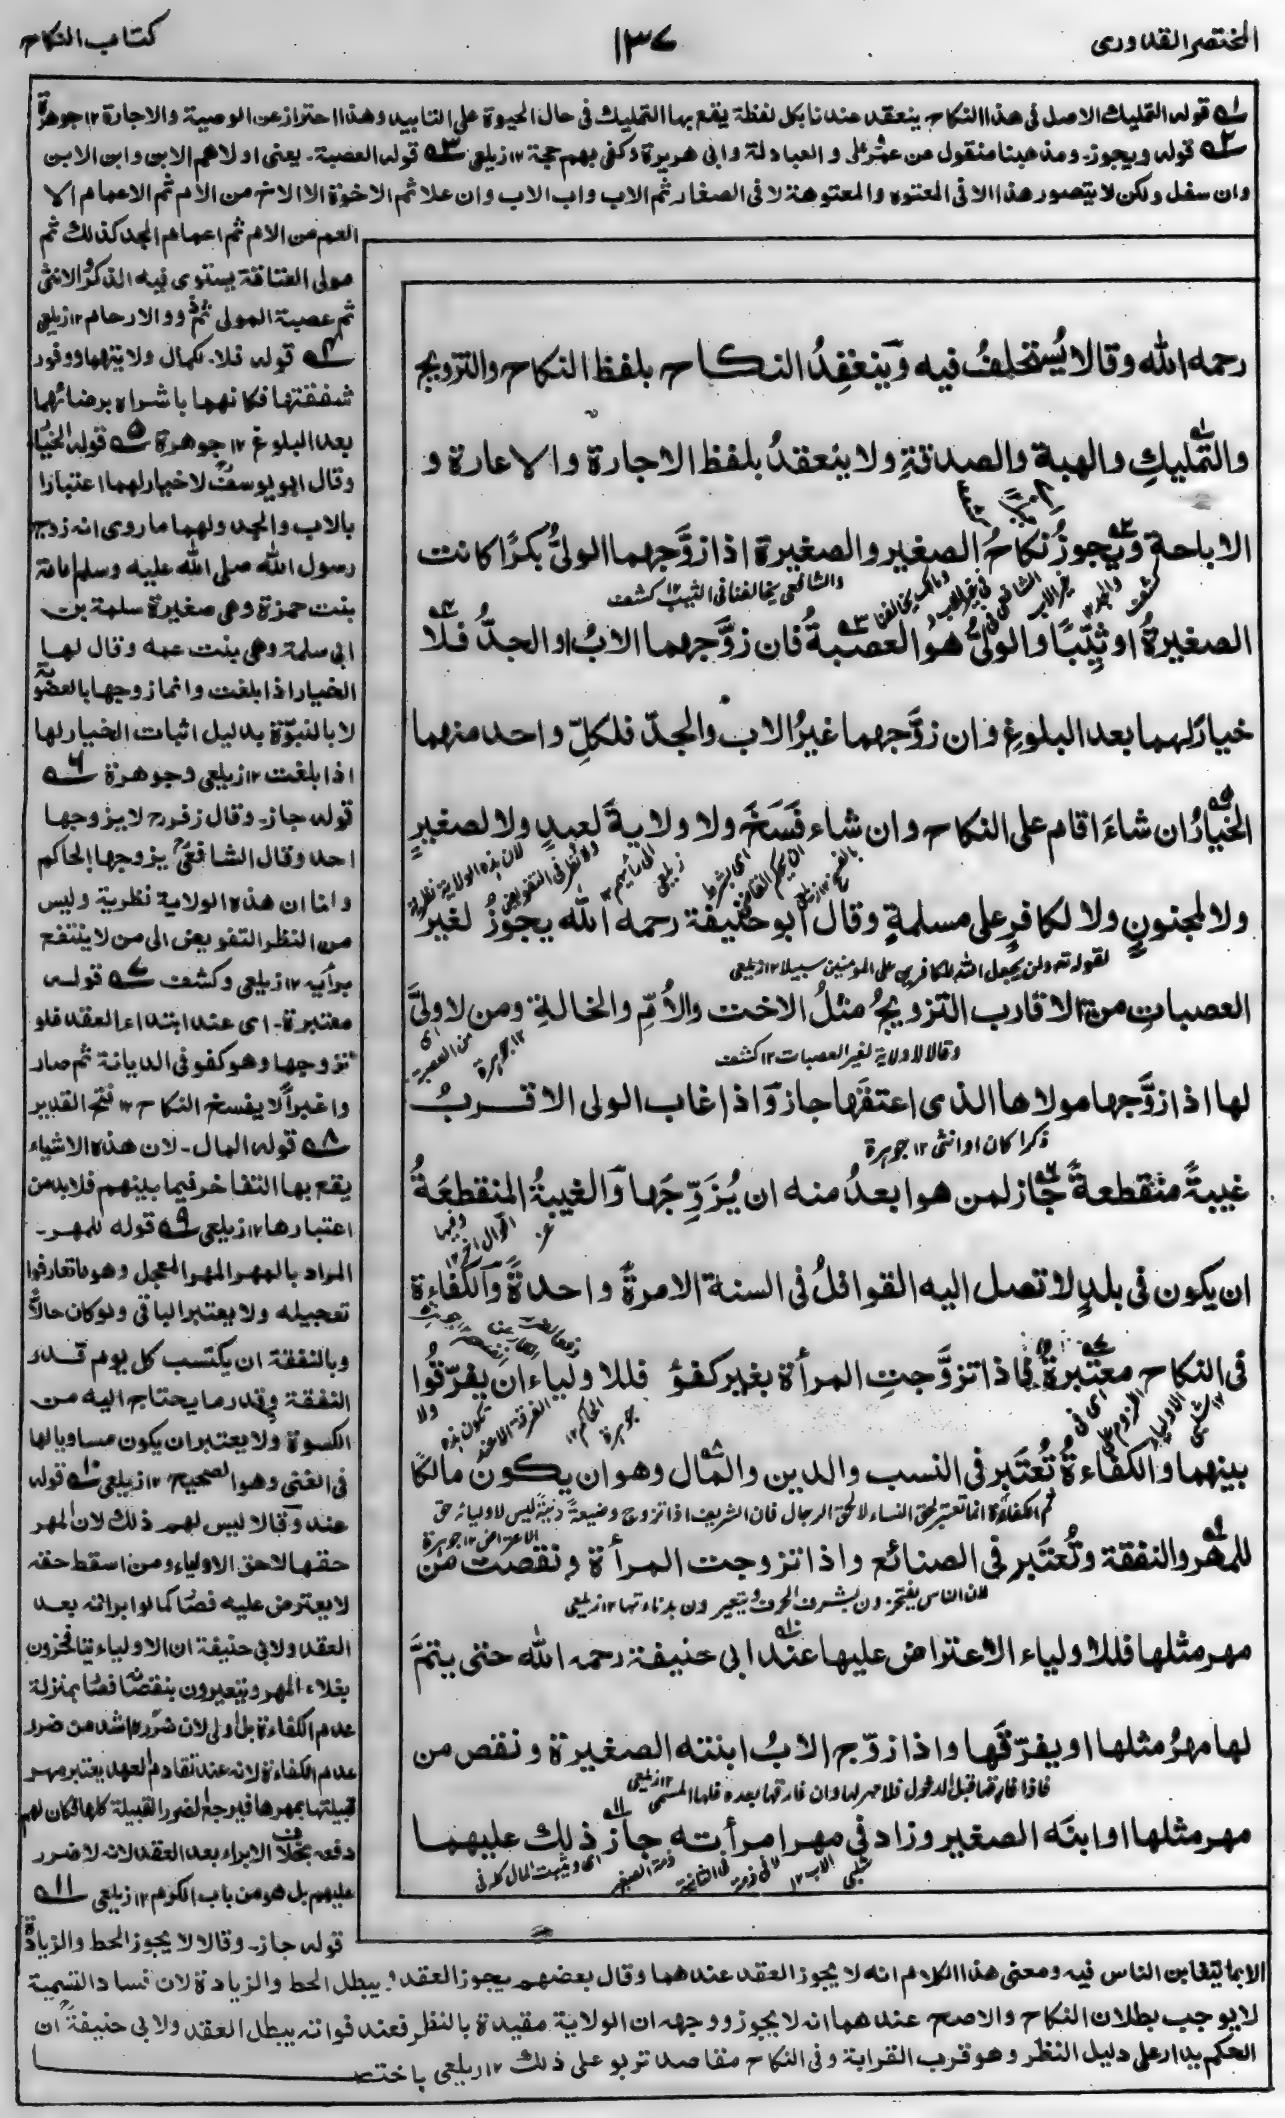 المختصر القدوری
١٣٧
كتاب النكاح
١ قوله التمليك الاصل فى هذا النكاح ينعقد عندنا بكل لفظة يقع بها التمليك فى حال الحيوة على التابيد وهذا احتراز عن الوصية والاجارة ١٢ جوهرة
٢ قوله ويجوز۔ ومذهبنا منقول عن عمر وعلى والعبادلة وابى هريرة وكفى بهم حجة ١٢ زيلعى ٣ قوله العصبة۔ يعنى اولاهم الابن وابن الابن
وان سفل ولكن لا يتصور هذا الا فى المعتوه والمعتوهة لا فى الصغار ثم الاب واب الاب وان علا ثم الاخوة الا الاخ من الام ثم الاعمام الا
العم من الام ثم اعمام الجد كذلك ثم
مولى العتاقة يستوى فيه الذكر والانثى
ثم عصبة المولى ثم ذوو الارحام ١٢ زيلعى
٤ قوله فلا۔ لكمال ولايتهما ووفور
شفقتها فكانهما باشراه برضائهما
بعد البلوغ ١٢ جوهرة ٥ قوله الخيار
وقال ابو يوسف لا خيار لهما اعتبارا
بالاب والجد ولهما ما روى انه زوج
رسول الله صلى الله عليه وسلم امامة
بنت حمزة وهى صغيرة سلمة بن
ابى سلمة وهى بنت عمه وقال لها
الخيار اذا بلغت وانما زوجها بالعصوبة
لا بالنبوّة بدليل اثبات الخيار لها
اذا بلغت ١٢ زيلعى وجوهرة ٦
قوله جاز۔ وقال زفر لا يزوجها
احد وقال الشافعى يزوجها الحاكم
وانا ان هذه الولاية نظرية وليس
من النظر التفويض الى من لا ينتفع
برأيه ١٢ زيلعى وكشف ٧ قوله
معتبرة۔ اى عند ابتداء العقد فلو
تزوجها وهو كفو فى الديانة ثم صار
داغرا لا يفسخ النكاح ١٢ فتح القدير
٨ قوله المال۔ لان هذه الاشياء
يقع بها التفاخر فيما بينهم فلا بد من
اعتبارها ١٢ زيلعى ٩ قوله للمهر۔
المراد بالمهر المهر المعجل وهو ما تعارفوا
تعجيله ولا يعتبر الباقى ولو كان حالاً
وبالنفقة ان يكتسب كل يوم قدر
النفقة وقدر ما يحتاج اليه من
الكسوة ولا يعتبر ان يكون مساويا لها
فى الغنى وهو الصحيح ١٢ زيلعى ١٠ قوله
عند وقالا ليس لهم ذلك لان المهر
حقها لا حق الاولياء ومن اسقط حقه
لا يعترض عليه فصار كما لو ابرأته بعد
العقد ولابى حنيفة ان الاولياء يتفاخرون
بغلاء المهر ويتعيرون بنقصانه فصار بمنزلة
عدم الكفاءة بل اولى لان ضرره اشد من ضرر
عدم الكفاءة لانه عند تقادم العهد يعتبر مهر
قبيلتها بمهرها فيرجع الضرر القبيلة كلها فكان لهم
دفعه بخلاف الابراء بعد العقد لانه لا ضرر
عليهم بل هو من باب الكرم ١٢ زيلعى ١١
قوله جاز۔ وقالا لا يجوز الحط والزيادة
الا بما يتغابن الناس فيه ومعنى هذا الكلام انه لا يجوز العقد عندهما وقال بعضهم يجوز العقد ويبطل الحط والزيادة لان فساد التسمية
لا يوجب بطلان النكاح والاصح عندهما انه لا يجوز ووجهه ان الولاية مقيدة بالنظر فعند فواته يبطل العقد ولابى حنيفة ان
الحكم يدار على دليل النظر وهو قرب القرابة وفى النكاح مقاصد تربو على ذلك ١٢ زيلعى باختصـ
رحمه الله وقالا يُستحلفُ فيه وَيَنعَقِدُ النكاح بلفظ النكاح والتزويج
والتمليكِ والهبة والصدقةِ ولا ينعقدُ بلفظ الاجارة والاعارة و
الاباحة ويجوزُ نكاحُ الصغير والصغيرة اذا زوَّجهما الولىُّ بكرًا كانت
والشافعى يخالفنا فى الثيب ١٢ كشف
الصغيرةُ او ثيّبًا والولىُّ هو العصبةُ فان زوَّجهما الابُ او الجدُّ فلا
خيارَ لهما بعد البلوغِ وان زوَّجهما غيرُ الاب والجدّ فلكلِّ واحد منهما
الخيارُ ان شاءَ اقام على النكاح وان شاء فَسَخَ ولا ولايةَ لعبدٍ ولا لصغيرٍ
ولا لمجنونٍ ولا لكافرٍ على مسلمةٍ وقال ابو حنيفة رحمه الله يجوزُ لغير
لقوله تعـ ولن يجعل الله للكافرين على المؤمنين سبيلا ١٢ زيلعى
العصباتِ من الاقارب التزويجُ مثلُ الاخت والأمّ والخالةِ ومن لا ولىَّ
وقالا لا ولاية لغير العصبات ١٢ كشف
لها اذا زوَّجها مولاها الذى اعتقَها جاز وَاذا غاب الولى الاقربُ
ذكرا كان او انثى ١٢ جوهرة
غيبةً منقطعةً جاز لمن هو ابعدُ منه ان يُزَوِّجَها وَالغيبةُ المنقطعَةُ
ان يكون فى بلدٍ لا تصل اليه القوافلُ فى السنة الا مرةً واحدةً وَالكفاءة
فى النكاح معتبرةٌ فاذا تزوَّجتِ المرأة بغير كفؤ فللاولياء ان يفرّقُوا
بينهما والكفاءةُ تُعتَبر فى النسب والدين والمال وهو ان يكون مالكًا
ثم الكفاءة انما تعتبر لحق النساء لا لحق الرجال فان الشريف اذا تزوج وضيعة دنيئة ليس لاوليائه حق
الاعتراض ١٢ جوهرة
للمهر والنفقة وتُعتَبر فى الصنائع واذا تزوجت المرأة ونقصت من
لان الناس يفتخرون بشرف الحرف ويتعيرون بدناءتها ١٢ زيلعى
مهر مثلها فللاولياء الاعتراض عليها عند ابى حنيفة رحمه الله حتى يتمَّ
لها مهرُ مثلها او يفرّقَها واذا زوّج الابُ ابنته الصغيرة ونقص من
فاذا فارقها قبل الدخول فلا مهر لها وان فارقها بعده فلها المسمى ١٢ زيلعى
مهر مثلها او ابنَه الصغير وزاد فى مهر امرأته جاز ذلك عليهما